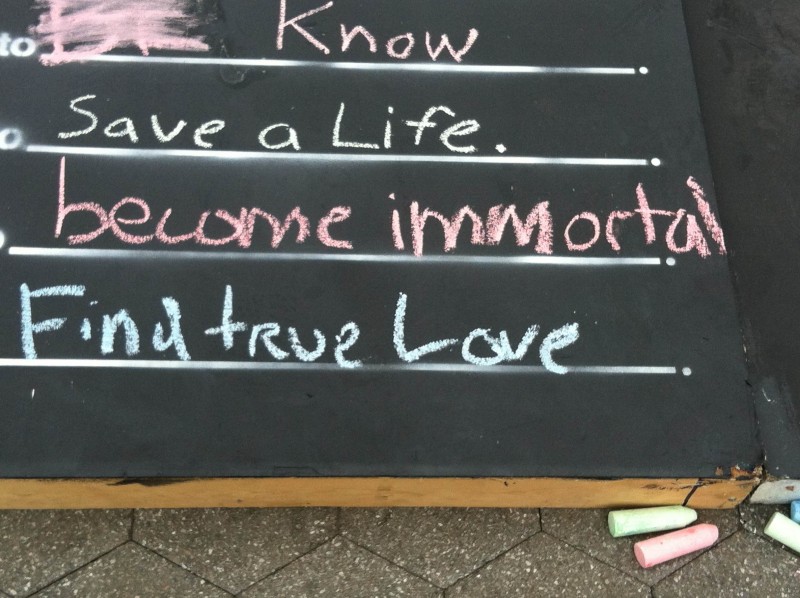 to Know
o Save a Life.
become immortal
Find true Love